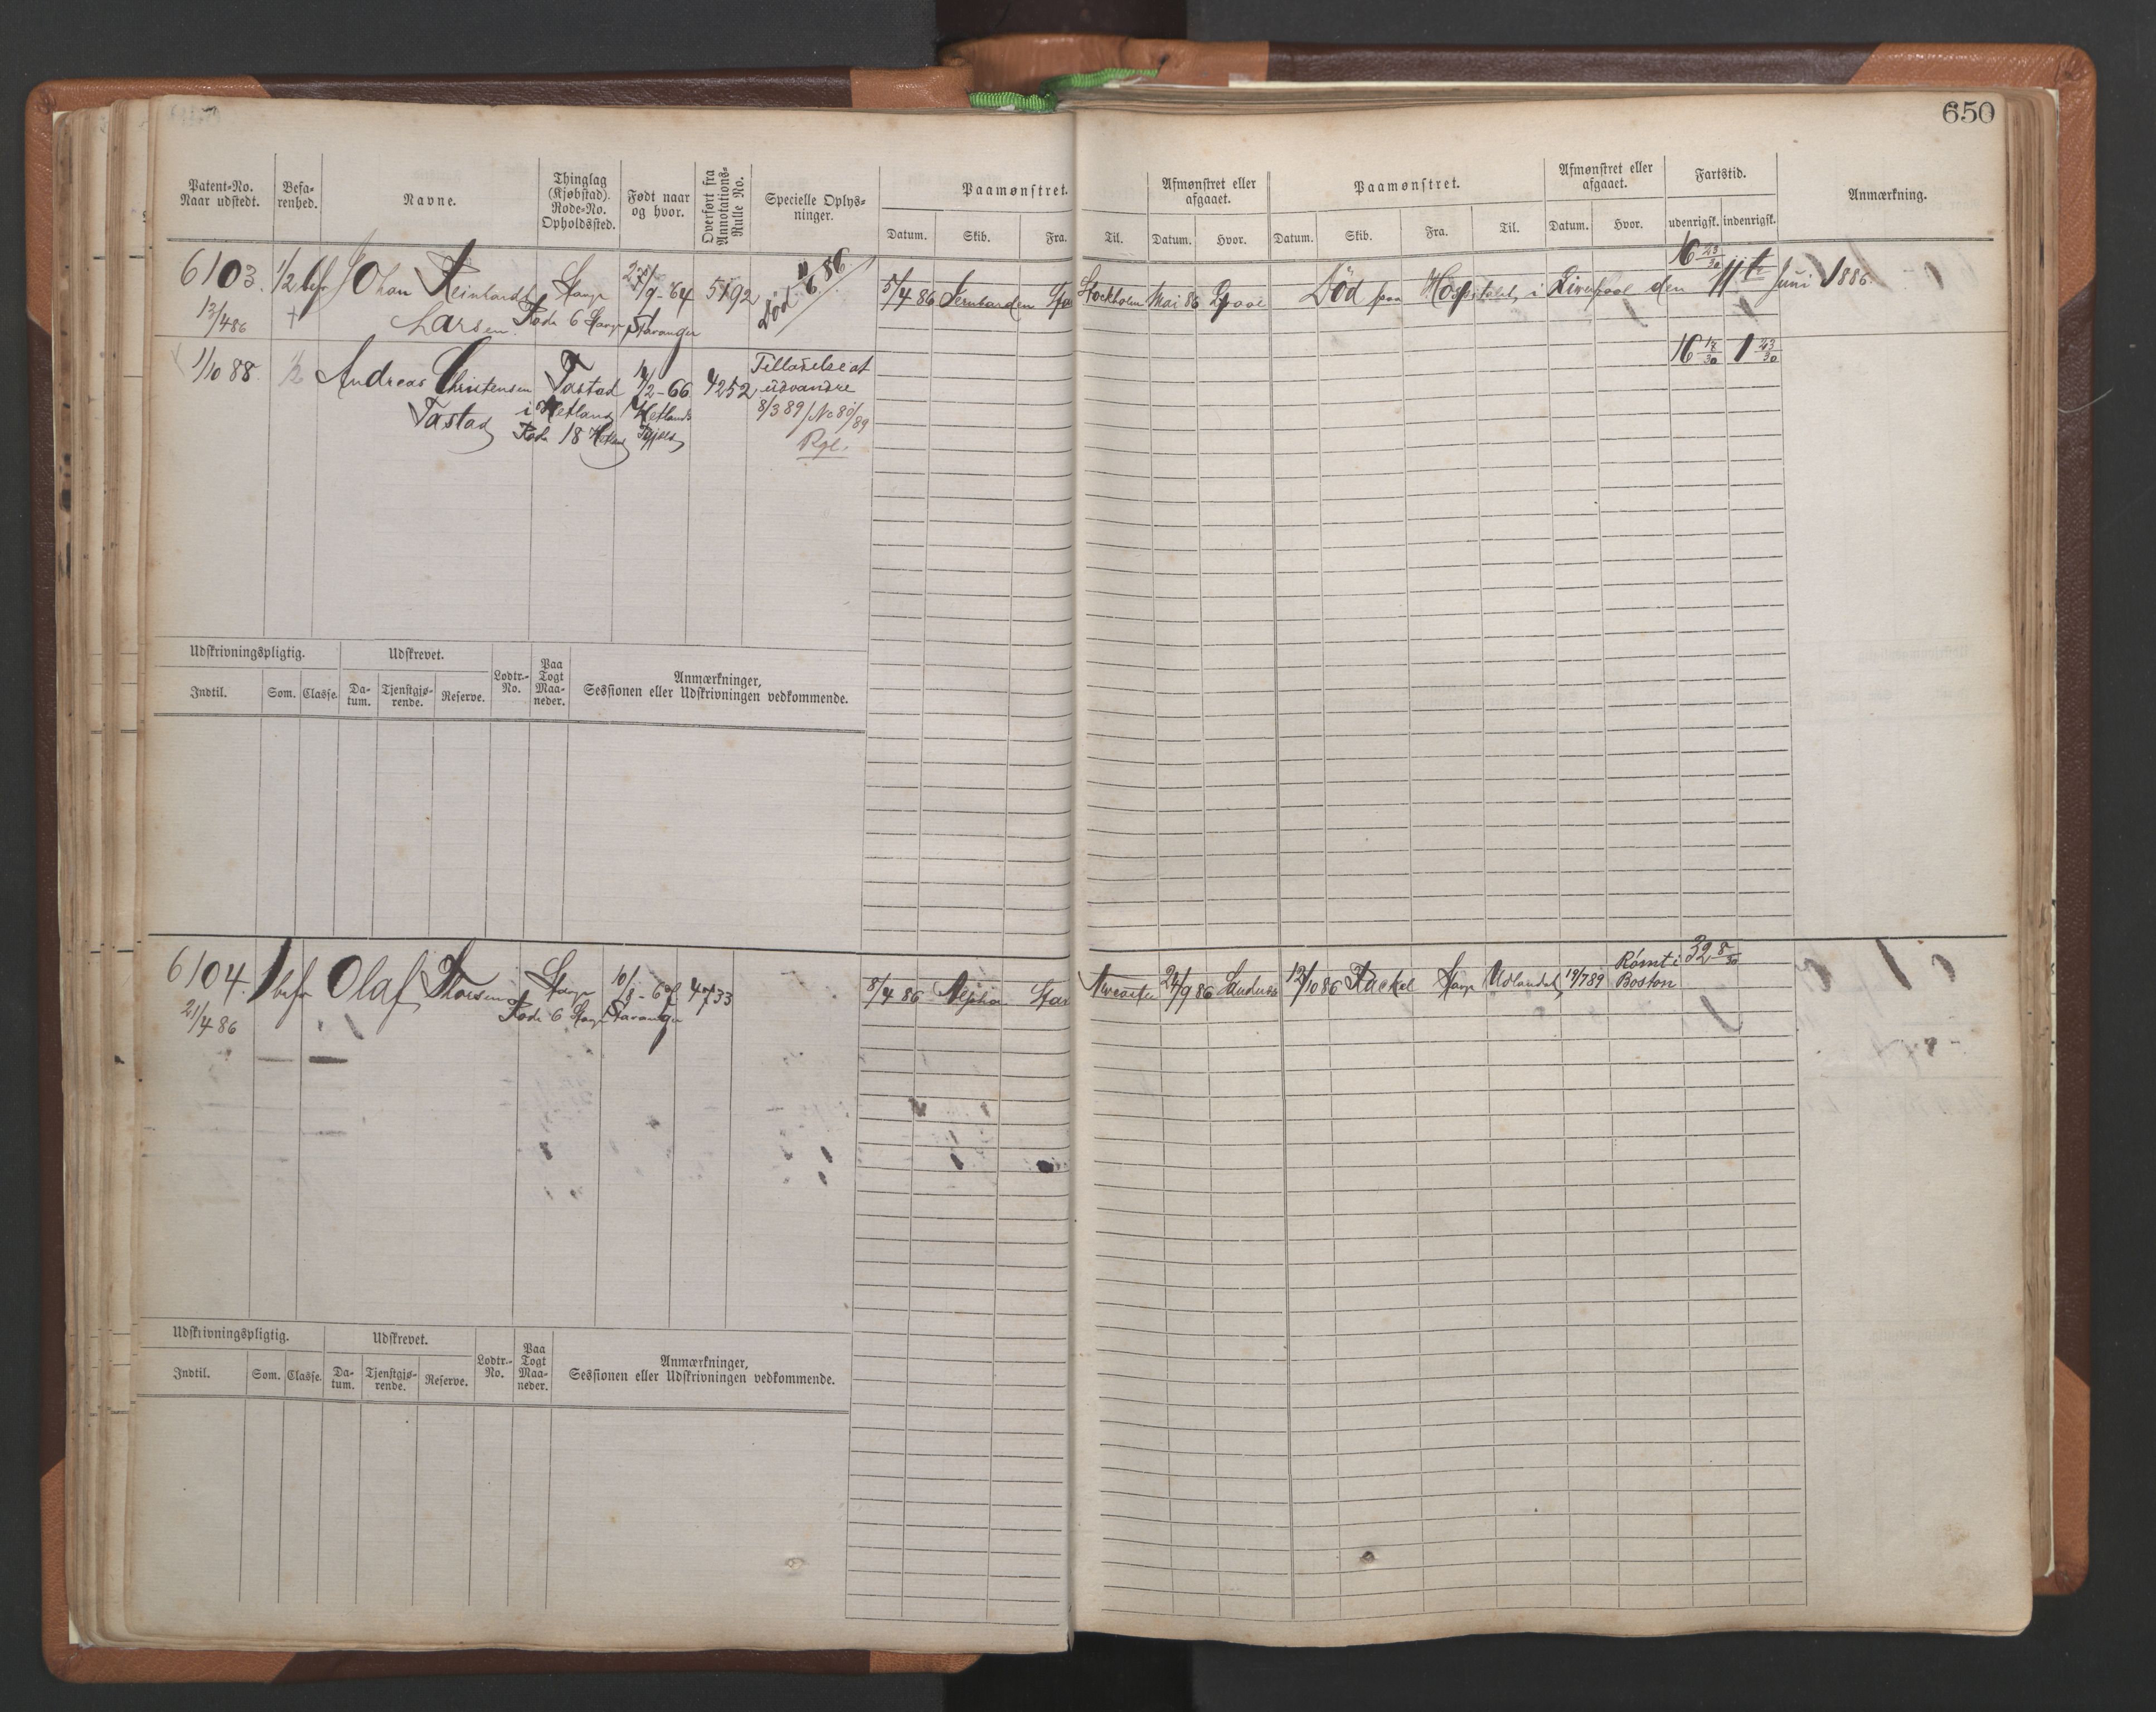 650
Patent-No. Naar udstedt.
Befa-renhed.
Navne.
Thinglag (Kjøbstad). Rode-No. Opholdssted.
Født naar og hvor.
Overført fra Annotations-Rulle No.
Specielle Oplys-ninger.
Paamønstret.
Afmønstret eller afgaaet.
Paamønstret.
Afmønstret eller afgaaet.
Fartstid.
Anmærkning.
Datum. Skib. Fra. Til. Datum. Hvor. Datum. Skib. Fra. Til. Datum. Hvor. udenrigsk. indenrigsk.
16 28/30
6103. 1/2 bef Johan Reinhardt Stavgr /9-64 5192 Død 11/6 86 5/4 86 Sta Stockholm Mai 86 Lpool Død paa Hospitalet i Liverpool den 11te Juni 1886.
13/4 86 + Larsen. Rode 6 Stavgr Stavanger
16 12/30 1 23/30
1/10 88. 1/2 Andreas Christensen Tastad /2-66 4252 Tilladelse at udvandre
Tastad i Hetland Hetland 8/3 89/No 80/89
Rode 18
Udskrivningspligtig. Udskrevet. Lodtr.-No. Paa Togt Maa-neder. Anmærkninger, Sessionen eller Udskrivningen vedkommende.
Indtil. Som. Classe. Da-tum. Tjenstgjø-rende. Reserve.
32 8/30
6104. 1 bef Olaf Thorsen Stavgr 10/ 4733 8/4 86 Alpha Sta 24/9 86 12/10 86 Rackel Stavgr Udlandet 19/7 89 Rømt i Boston
21/4 86 Rode 6 Stavgr Stavanger
Udskrivningspligtig. Udskrevet. Lodtr.-No. Paa Togt Maa-neder. Anmærkninger, Sessionen eller Udskrivningen vedkommende.
Indtil. Som. Classe. Da-tum. Tjenstgjø-rende. Reserve.